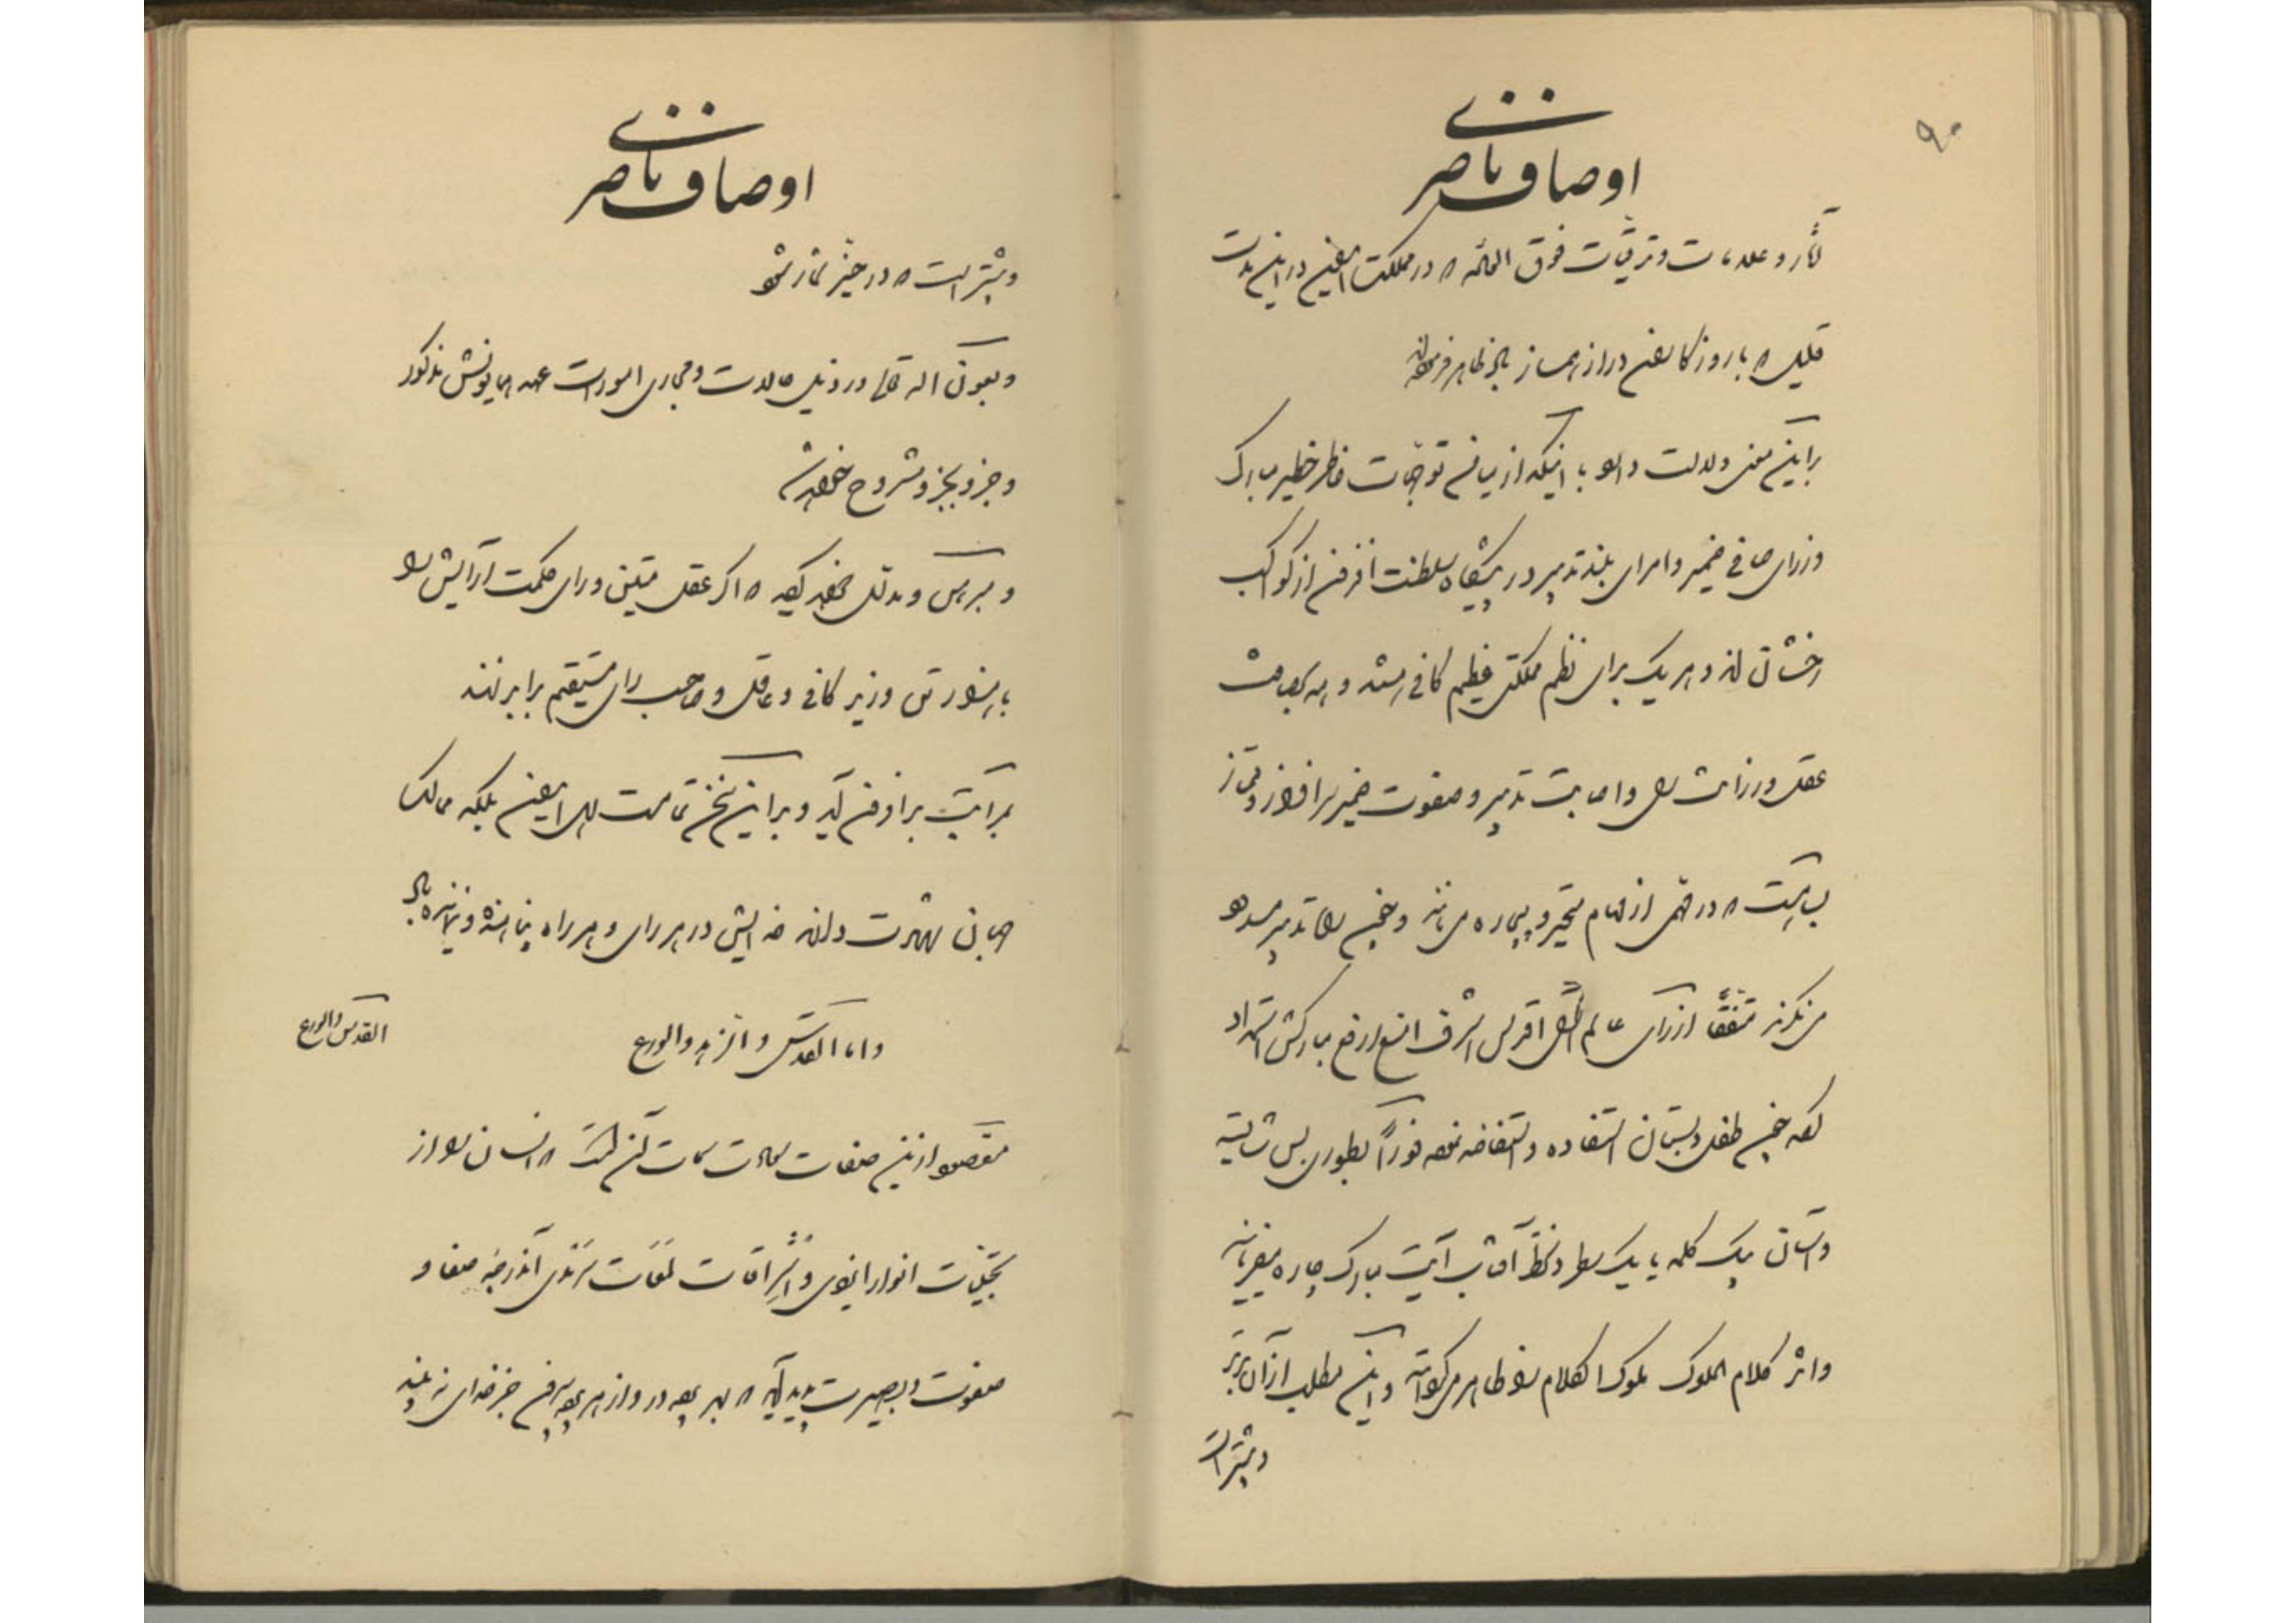 ۹۰
اوصاف ناصری
آثار و علامات و ترقیات فوق العاده که در مملکت ایران در این مدت
قلیل که با روزگاران دراز
بر این معنی دلالت دارد با اینکه از میامن توجهات خاطر خطیر مبارک
وزرای صافی ضمیر و امرای بلند تدبیر در پیشگاه سلطنت افزون از کواکب
رخشان‌اند و هر یک برای نظم مملکتی عظیم کافی هستند و همه
عقل و رزانت رای و اصابت تدبیر و صفوت ضمیر سرافراز و ممتاز
بسا هست که در مهمی از مهام متحیر و بیچاره می‌مانند و چون راه تدبیر مسدود
می‌نگرند متفقا از رای عالم آرای اقدس اشرف امنع ارفع مبارکش استمداد
کرده چون طفل دبستان استفاده و استفاضه نموده فورا بطوری بس شایسته
و آسان بیک کلمه یا یک سطر دستخط آفتاب آیت مبارک چاره میفرمایند
و اثر کلام الملوک ملوک الکلام را ظاهر می‌کردانند و این مطلب از آن برتر
و بیشتر است
اوصاف ناصری
و بیشتر است که در حیز شماره شود
و بعون الله تعالی در ذیل حالات و مجاری امورات عهد همایونش مذکور
و جزو بجزو مشروح خواهد شد
و مبرهن و مدلل خواهد کرد که اگر عقل متین و رای حکمت آرایش را
با هزار تن وزیر کافی و عاقل و صاحب رای مستقیم برابر نهند
بمراتب برافزون آید و بر این سخن تمامت اهل ایران بلکه ممالک
جهان شهادت دارند خدایش در هر رای و هر راه پناهنده و نماینده باد
و اما التقدس و الزهد و الورع
القدس و الورع
مقصود از این صفات سعادت سمات آن است که انسان را از
تجلیات انوار ایزدی و اشراقات لمعات سرمدی آن درجه صفا و
صفوت و بصیرت پدید آید که بهر چه در و از هر چه بیرون جز خدای نه بیند